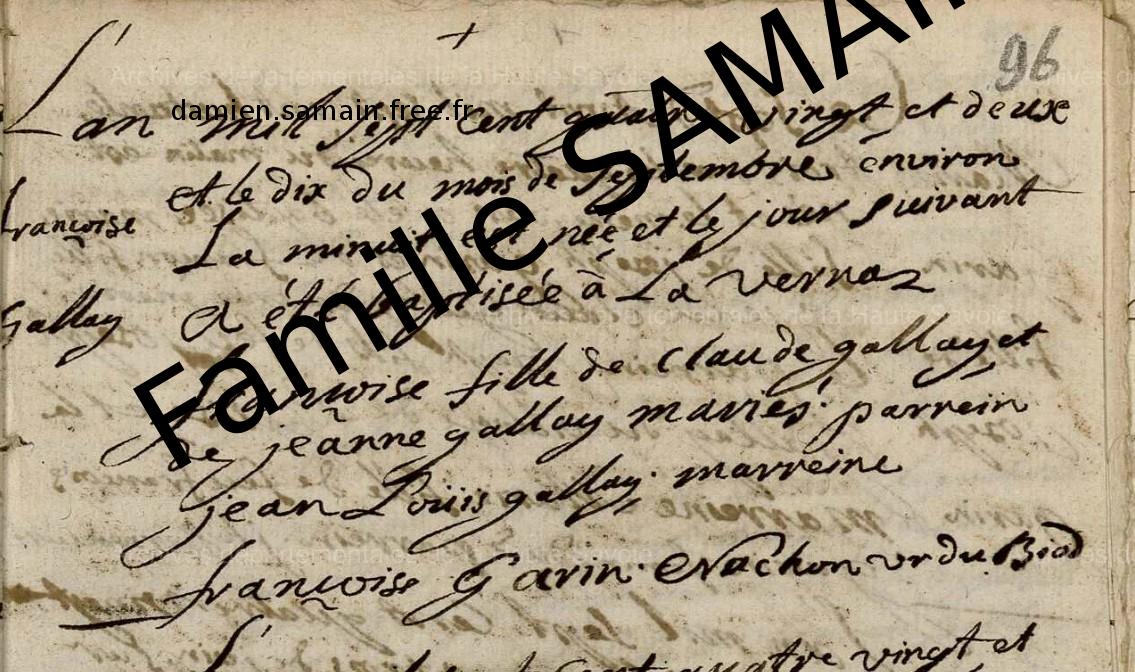 96
L'an mil sept cent quatre vingt et deux
et le dix du mois de septembre environ
françoise
La minuit est née et le jour suivant
Gallay
a été baptisée à La vernaz
françoise fille de Claude gallay et
de jeanne gallay mariés parrein
jean Loüis gallay marreine
françoise Garin Nachon vr du Biod
L'
cent quatre vingt et
damien.samain.free.fr
Famille SAMAIN
Archives départementales de la Haute Savoie
Archives départementales de la Haute Savoie
Archives départementales de la Haute Savoie